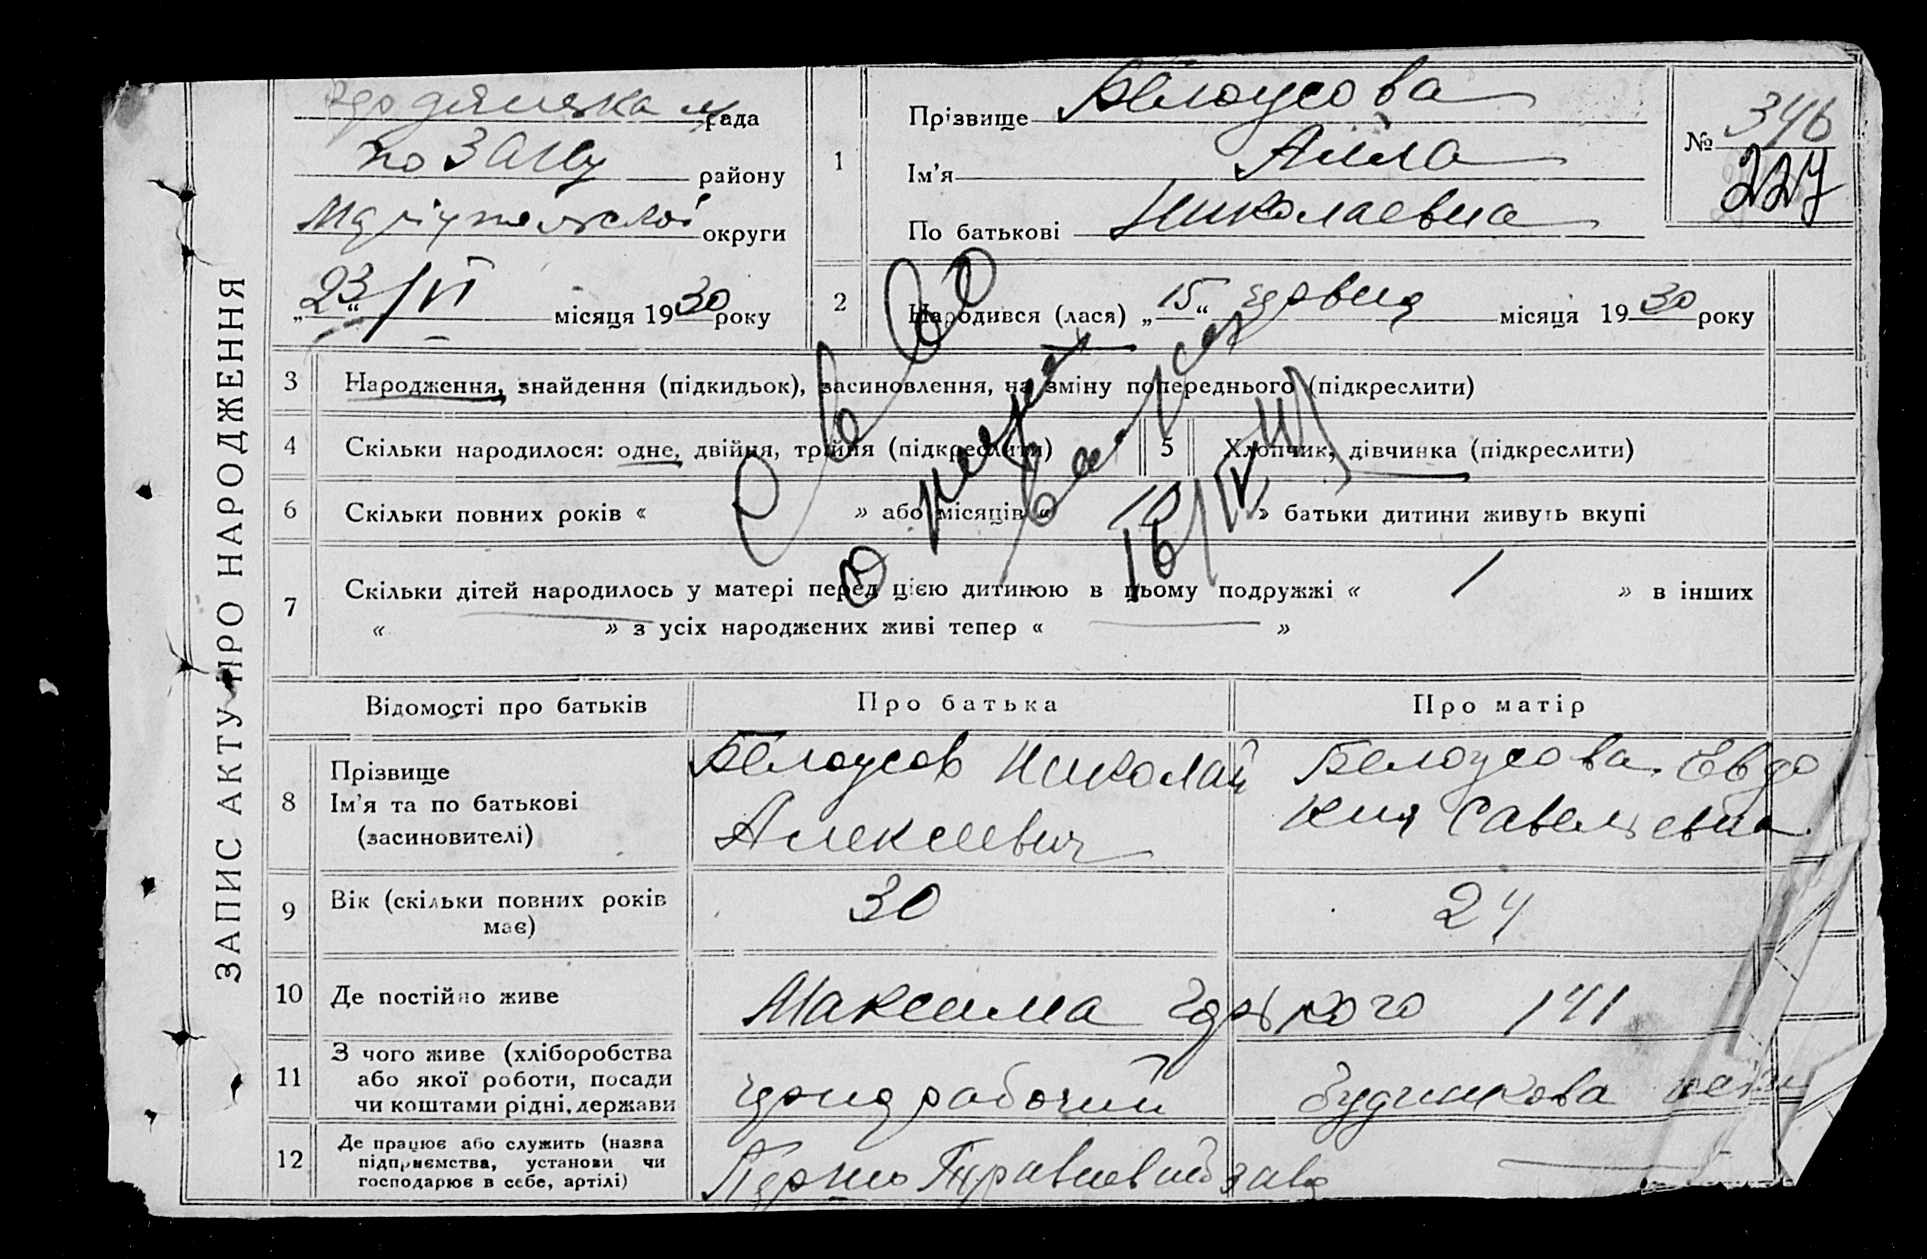 ЗАПИС АКТУ ПРО НАРОДЖЕННЯ
рада
по ЗАГСу району
Маріупольської округи
„23“/VI місяця 1930 року
1
Прізвище Белоусова
Ім'я Алла
По батькові Николаевна
№ 346
227
2
Народився (лася) „15“ червня місяця 1930 року
3 Народження, знайдення (підкидьок), засиновлення, на зміну попереднього (підкреслити)
4 Скільки народилося: одне, двійня, трійня (підкреслити)
5 Хлопчик, дівчинка (підкреслити)
6 Скільки повних років « » або місяців « » батьки дитини живуть вкупі
7 Скільки дітей народилось у матері перед цією дитиною в цьому подружжі « / » в інших
« » з усіх народжених живі тепер « »
Відомості про батьків
Про батька
Про матір
8
Прізвище
Ім'я та по батькові
(засиновителі)
Белоусов Николай
Алексеевич
Белоусова Евдо
кия Савельевна
9
Вік (скільки повних років
має)
30
24
10 Де постійно живе
Максима Горького 141
11
З чого живе (хліборобства
або якої роботи, посади
чи коштами рідні, держави
рабочий
12
Де працює або служить (назва
підприємства, установи чи
господарює в себе, артілі)
зав